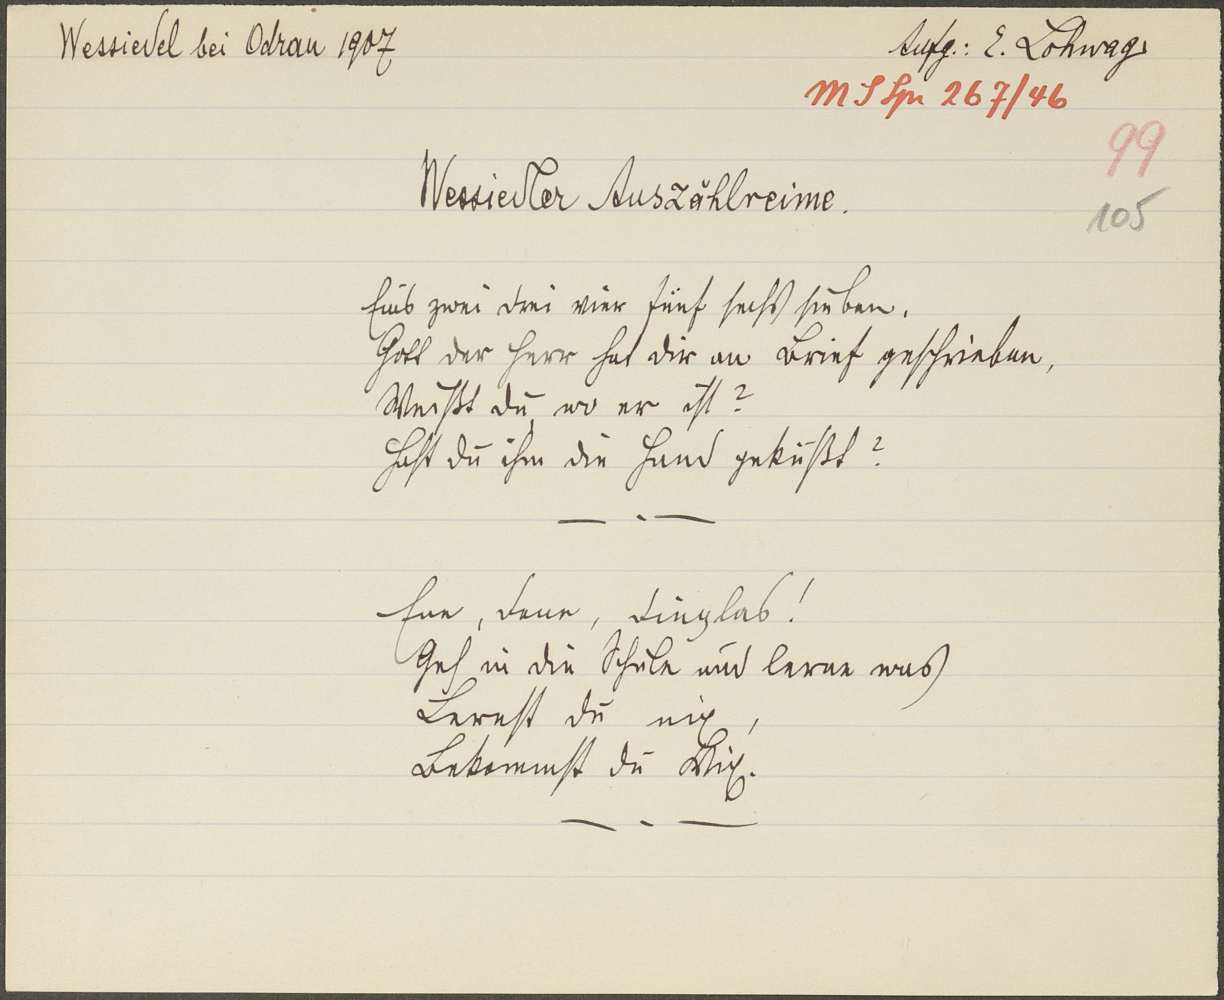 Wessiedel bei Odrau 1907
Aufg.: E. Lohwag
M S Spr 267/46
99
105
Wessiedler Auszählreime.
Eins zwei drei vier fünf sechs sieben,
Gott der Herr hat dir an Brief geschrieben,
Weißt du, wo er ist?
Hast du ihm die Hand geküßt?
Ene, dene, dinglas!
Geh in die Schule und lerne was
Lernst du nix,
Bekommst du Wix.